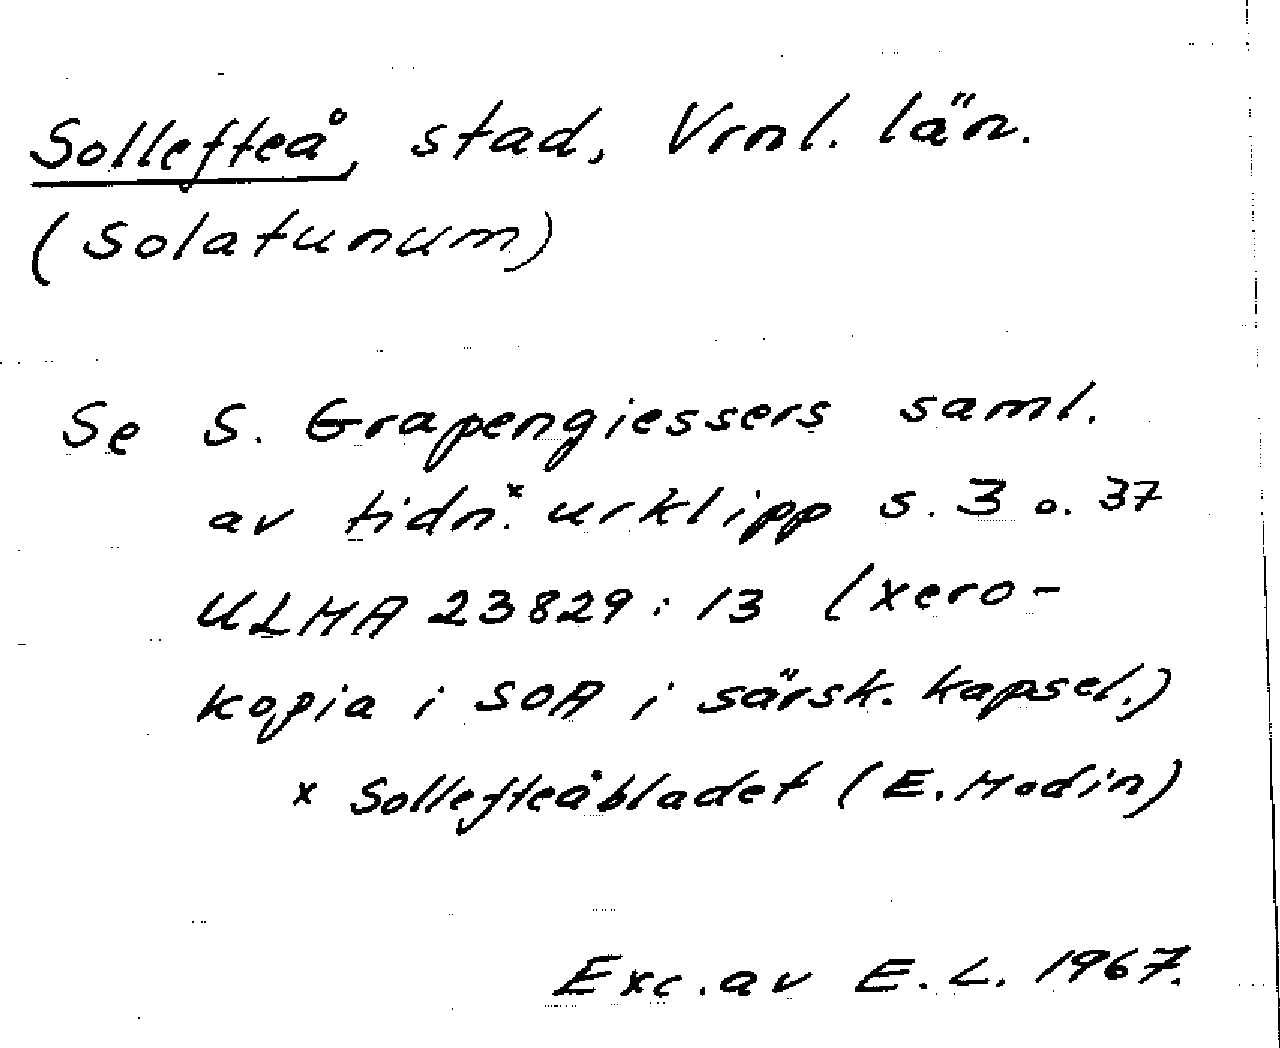 Sollefteå, stad, Vrnl. län.
(Solatunum)
Se S. Grapengiessers saml.
av tidn.x urklipp s. 3 o. 37
ULMA 23829:13 (xero-
kopia i SOA i särsk. kapsel.)
x Sollefteåbladet (E. Modin)
Exc. av E. L. 1967.